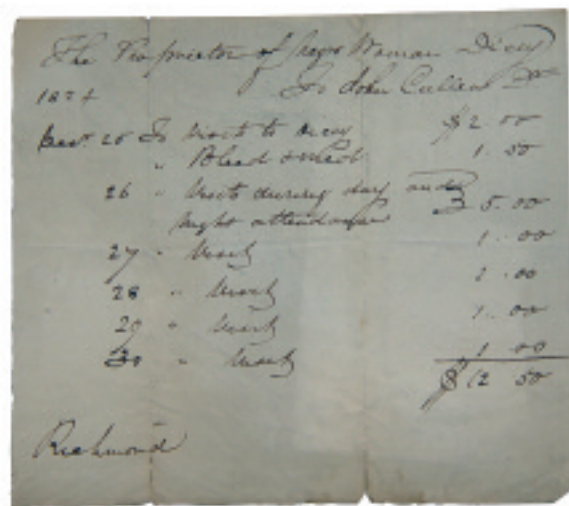 The Proprietor of Negro Woman Dicey
1824 To John Cullen Dr
20 To visit to Dicey $2.00
" Bleed & Med 1.50
26 " Visits during day and
night attendance 5.00
27 " Visit 1.00
28 " Visit 1.00
29 " Visit 1.00
30 " Visit 1.00
$12.50
Richmond